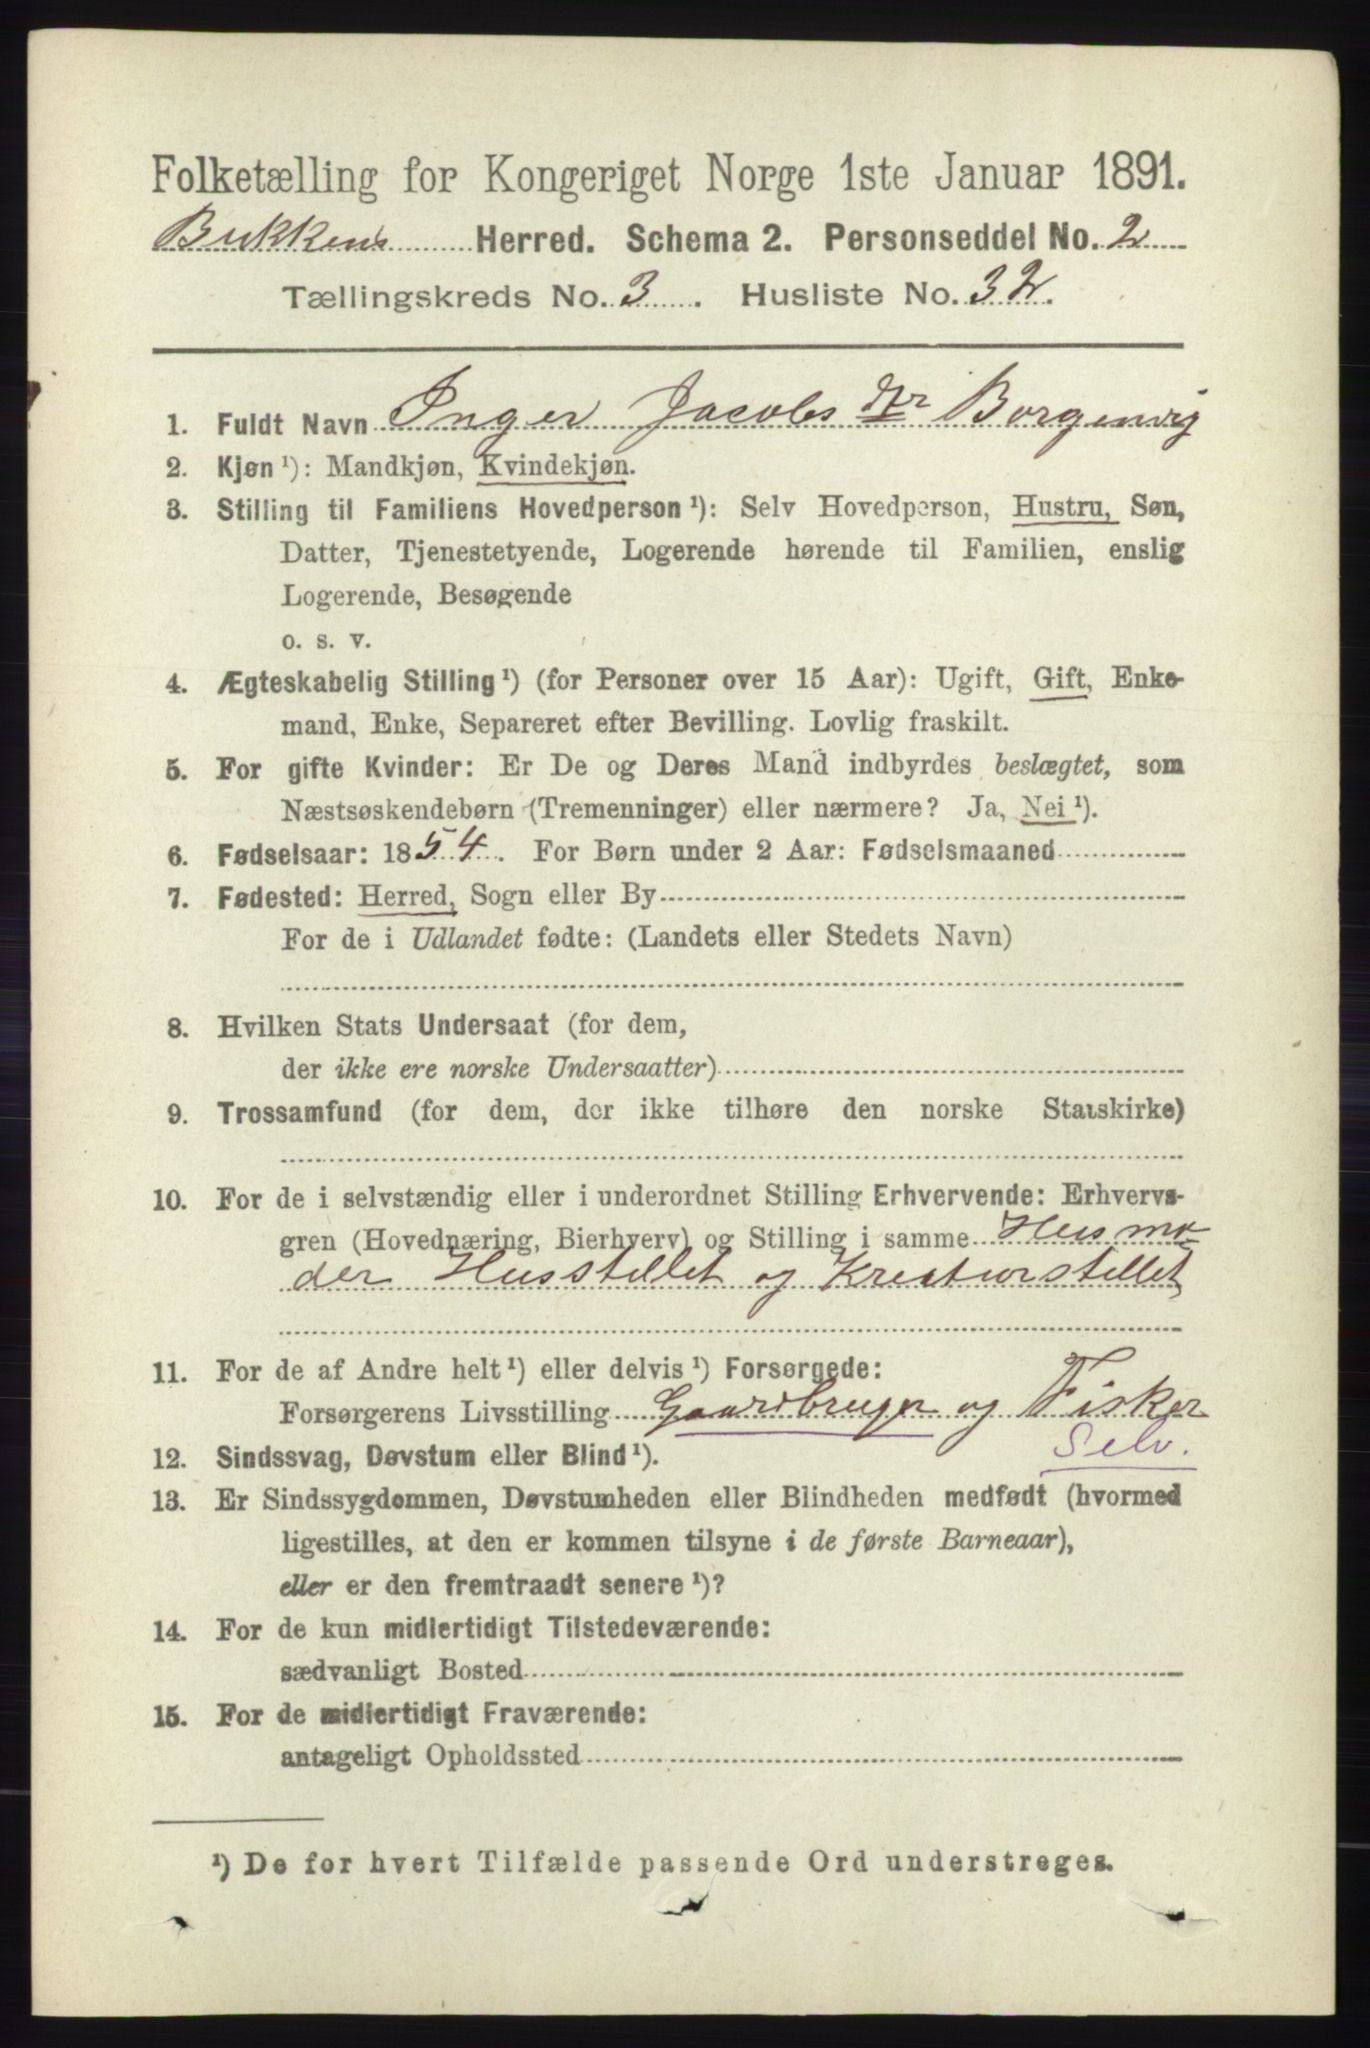 Folketælling for Kongeriget Norge 1ste Januar 1891.
Bukkens Herred. Schema 2. Personseddel No. 2
Tællingskreds No. 3. Husliste No. 32.
1. Fuldt Navn Inger Jacobs dtr Borgenvig
2. Kjøn¹): Mandkjøn, Kvindekjøn.
3. Stilling til Familiens Hovedperson¹): Selv Hovedperson, Hustru, Søn,
Datter, Tjenestetyende, Logerende hørende til Familien, enslig
Logerende, Besøgende
o. s. v.
4. Ægteskabelig Stilling¹) (for Personer over 15 Aar): Ugift, Gift, Enke-
mand, Enke, Separeret efter Bevilling. Lovlig fraskilt.
5. For gifte Kvinder: Er De og Deres Mand indbyrdes beslægtet, som
Næstsøskendebørn (Tremenninger) eller nærmere? Ja, Nei¹).
6. Fødselsaar: 1854. For Børn under 2 Aar: Fødselsmaaned
7. Fødested: Herred, Sogn eller By
For de i Udlandet fødte: (Landets eller Stedets Navn)
8. Hvilken Stats Undersaat (for dem,
der ikke ere norske Undersaatter)
9. Trossamfund (for dem, der ikke tilhøre den norske Statskirke)
10. For de i selvstændig eller i underordnet Stilling Erhvervende: Erhvervs-
gren (Hovednæring, Bierhverv) og Stilling i samme Husmo-
der Husstellet og Kreaturstellet
11. For de af Andre helt¹) eller delvis¹) Forsørgede:
Forsørgerens Livsstilling Gaardbruger og Fisker
Selv.
12. Sindssvag, Døvstum eller Blind¹).
13. Er Sindssygdommen, Døvstumheden eller Blindheden medfødt (hvormed
ligestilles, at den er kommen tilsyne i de første Barneaar),
eller er den fremtraadt senere¹)?
14. For de kun midlertidigt Tilstedeværende:
sædvanligt Bosted
15. For de midlertidigt Fraværende:
antageligt Opholdssted
¹) De for hvert Tilfælde passende Ord understreges.